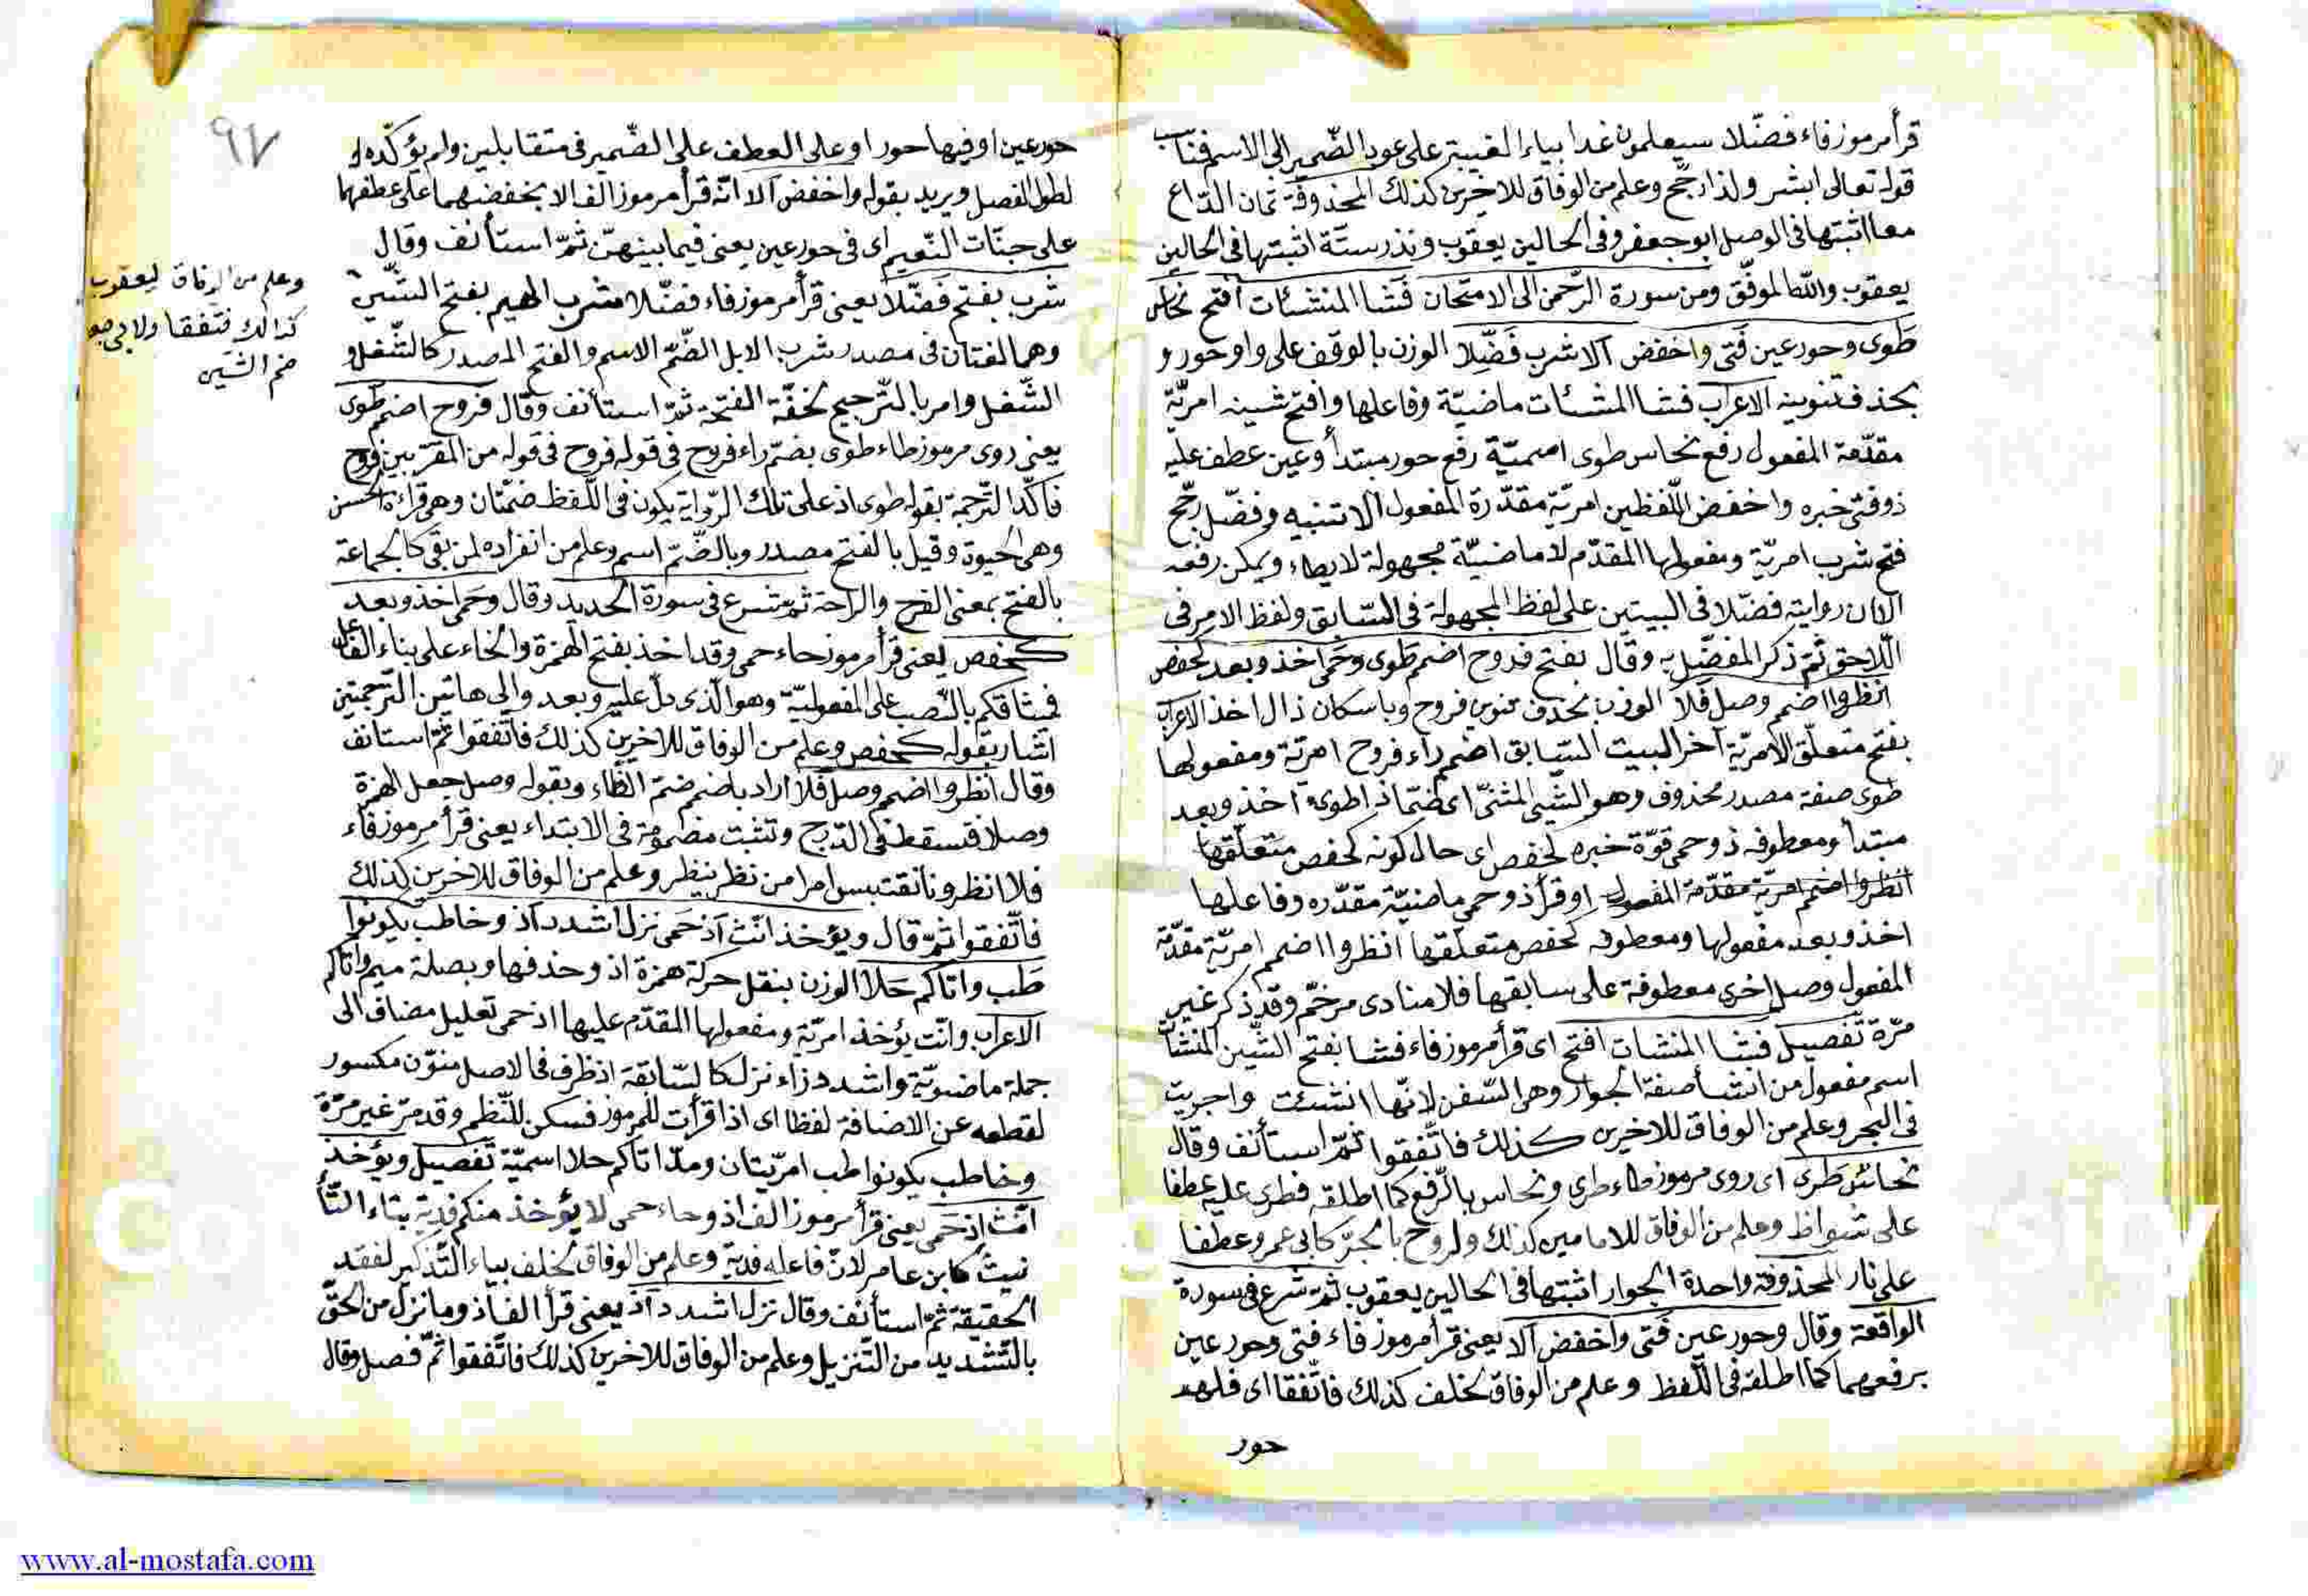 قرأ مرموز فاء فضّلا سيعلمون غدا بياء الغيبة على عود الضّمير الى الاسم فناسب
قوله تعالى ابشر ولذا رجّح وعلم من الوفاق للاخرين كذلك المحذوفة ثمان الدّاع
معا اثبتها فى الوصل ابو جعفر وفى الحالين يعقوب ونذر ستّة اثبتها فى الحالين
يعقوب والله الموفّق ومن سورة الرّحمن الى الامتحان فَشا المنشئات افتح نحاس
طَوى وحور عين فَتى واخفض الا شرب فَضّلا الوزن بالوقف على واو حور و
بحذف تنوينه الاعراب فشا المنشئات ماضيّة وفاعلها وافتح شينه امريّة
مقدّمة المفعول رفع نحاس طوى اسميّة رفع حور مبتدأ وعين عطف عليه
ذو فتى خبره واخفض اللّفظين امريّة مقدّرة المفعول الا تنبيه وفضّل رجّح
فتح شرب امريّة ومفعولها المقدّم لا ماضيّة مجهولة لايطاء ويمكن رفعه
الان رواية فضّلا فى البيتين على لفظ المجهولة فى السّابق ولفظ الامر فى
اللّاحق ثمّ ذكر المفضّل به وقال بفتح فروح اضمم طَوى وحَمى اخذ وبعد كحفص
انظروا اضمم وصل فلا الوزن بحذف تنوين فروح وباسكان ذال اخذ الاعراب
بفتح متعلّق الامريّة آخر البيت السّابق اضمم راء فروح امريّة ومفعولها
طوى صفة مصدر محذوف وهو الشّئ المثنّى اى ضمّا ذا طوى اخذ وبعد
مبتدأ ومعطوفه ذو حمى قوّة خبره كحفص اى حال كونه كحفص متعلّقها
انظروا اضمم امريّة مقدّمة المفعول او قرأ ذو حمى ماضيّة مقدّره وفاعلها
اخذ وبعد مفعولها ومعطوفه كحفص متعلقها انظروا اضمم امريّة مقدّمة
المفعول وصل اخرى معطوفة على سابقها فلا منادى مرخّم وقد ذكر غير
مرّة تفصيل فشا المنشات افتح اى قرأ مرموز فاء فشا بفتح الشّين المنشآت
اسم مفعول من انشأ صفة الجوار وهى السّفن لانّها انشئت واجريت
فى البحر وعلم من الوفاق للاخرين كذلك فاتّفقوا ثمّ استأنف وقال
نحاس طَرى اى روى مرموز طاء طرى ونحاس بالرّفع كما اطلقه فطرى عليه عطفا
على شواظ وعلم من الوفاق للامامين كذلك ولروح بالجرّ كابى عمرو عطفا
على نار المحذوفة واحدة الجوار اثبتها فى الحالين يعقوب ثمّ شرع فى سورة
الواقعة وقال وحور عين فَتى واخفض الا يعنى قرأ مرموز فاء فتى وحور عين
برفعهما كما اطلقه فى اللّفظ وعلم من الوفاق لخلف كذلك فاتّفقا اى فلهم
حور
٩٧
حور عين او فيها حور او على العطف على الضّمير فى متقابلين ولم يؤكّده
لطول الفصل ويريد بقوله واخفض الا انّه قرأ مرموز الف الا بخفضهما على عطفهما
على جنّات النّعيم اى فى حور عين يعنى فيما بينهنّ ثمّ استأنف وقال
شرب بفتح فَضّلا يعنى قرأ مرموز فاء فضّلا شرب الهيم بفتح الشّين
وهما لغتان فى مصدر شرب الابل الضّمّ الاسم والفتح المصدر كالشّغل و
الشّغل وامر بالتّرجيح لخفّة الفتحة ثمّ استأنف وقال فروح اضمم طَوى
يعنى روى مرموز طاء طوى بضمّ راء فروح فى قوله فروح فى قوله من المقرّبين فروح
فاكّد التّرجمة بقوله طوى اذ على تلك الرّواية يكون فى اللّفظ ضمّتان وهى قراءة الحسن
وهى الحيوة وقيل بالفتح مصدر وبالضّمّ اسم وعلم من انفراده لمن بقى كالجماعة
بالفتح بمعنى الفرح والراحة ثمّ شرع فى سورة الحديد وقال وحَمى اخذ وبعد
كحفص يعنى قرأ مرموز حاء حمى وقد اخذ بفتح الهمزة والخاء على بناء الفاعل
فميثاقكم بالنّصب على المفعوليّة وهو الّذى دلّ عليه وبعد والى هاتين التّرجمتين
اشار بقوله كحفص وعلم من الوفاق للاخرين كذلك فاتّفقوا ثمّ استأنف
وقال انظروا اضمم وصل فَلا اراد باضمم ضمّ الظّاء وبقوله وصل جعل الهمزة
وصلا فتسقط فى الدّرج وتثبت مضمومة فى الابتداء يعنى قرأ مرموز فاء
فلا انظرونا نقتبس امرا من نظر ينظر وعلم من الوفاق للاخرين كذلك
فاتّفقوا ثمّ قال ويؤخذ انّث اذ حَمى نزل اشدد اذ وخاطب يكونوا
طَب واتاكم حَلا الوزن بنقل حركة همزة اذ وحذفها وبصلة ميم واتاكم
الاعراب وانّث يؤخذ امريّة ومفعولها المقدّم عليها اذ حمى تعليل مضاف الى
جملة ماضويّة واشدد زاء نزل كالسّابقة اذ ظرف فى الاصل منوّن مكسور
لقطعه عن الاضافة لفظا اى اذا قرأت للمرموز فسكن للنّظم وقد مرّ غير مرّة
وخاطب يكونوا طب امريّتان ومدّ اتاكم حلا اسميّة تفصيل ويؤخذ
انّث اذ حَمى يعنى قرأ مرموز الف اذ وحاء حمى لا يؤخذ منكم فدية بتاء التّأ
نيث كابن عامر لانّ فاعله فدية وعلم من الوفاق لخلف بياء التّذكير لفقد
الحقيقة ثمّ استأنف وقال نزل اشدد اذ يعنى قرأ الف اذ وما نزل من الحقّ
بالتّشديد من التّنزيل وعلم من الوفاق للاخرين كذلك فاتّفقوا ثمّ فصل وقال
وعلم من الوفاق ليعقوب
كذالك فتفقا ولابى جعفر
ضم الشين
www.al-mostafa.com